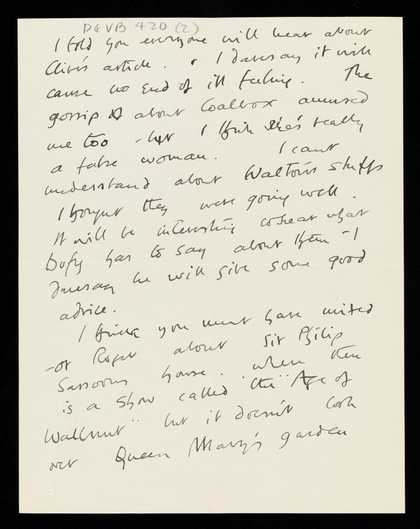 DGVB 420 (2)
I told you everyone will hear about
Clive's article. & I daresay it will
cause no end of ill feeling. The
gossip about Coalbox amused
me too - but I think she's really
a false woman. I cant
understand about Walton's stuffs
I thought they were going well.
It will be interesting to hear what
Dufy has to say about them - I
daresay he will give some good
advice.
I think you must have misled
- or Roger about Sir Philip
Sassoons house. when there
is a show called "the "Age of
Wallnut" but it doesn't look
over Queen Mary's garden